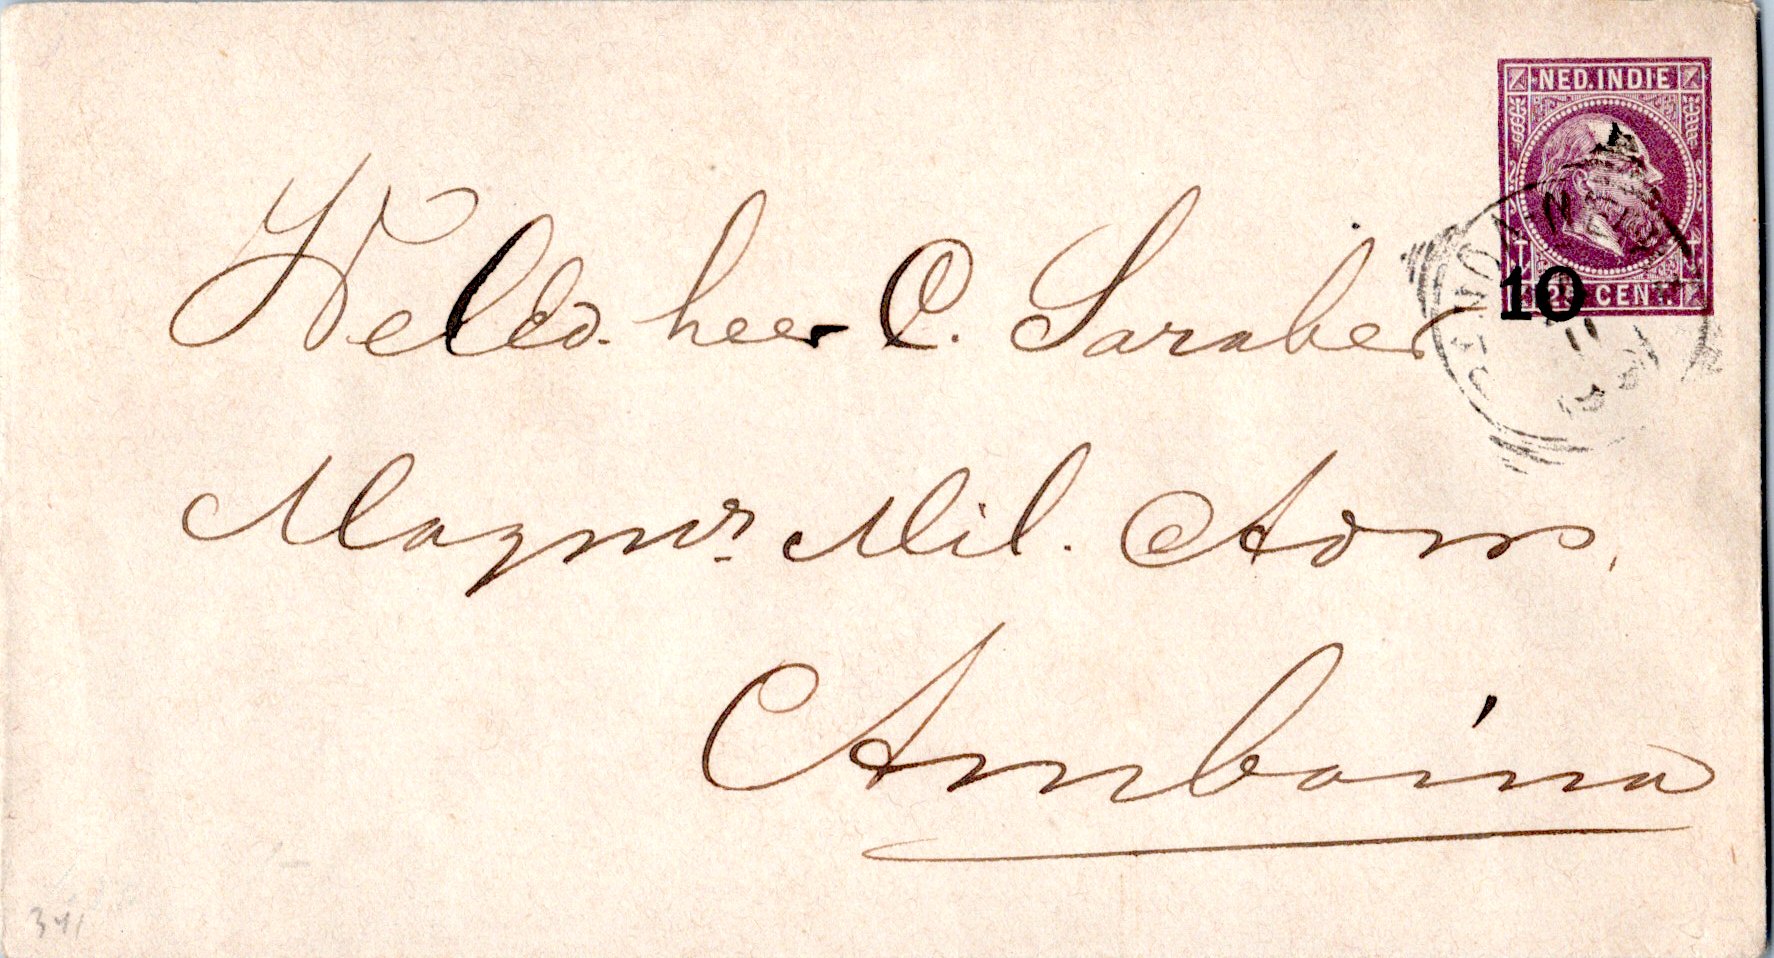 NED. INDIE
10
25 CENT.
WelEd. heer C. Saraber
Magnr. Mil. Adm.
Amboina
341